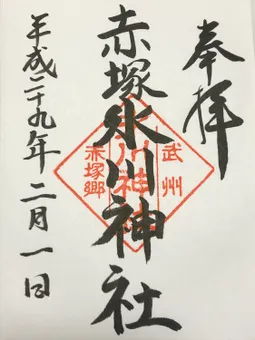 奉拝
武州
赤塚氷川神社
赤塚郷
平成二十九年二月一日